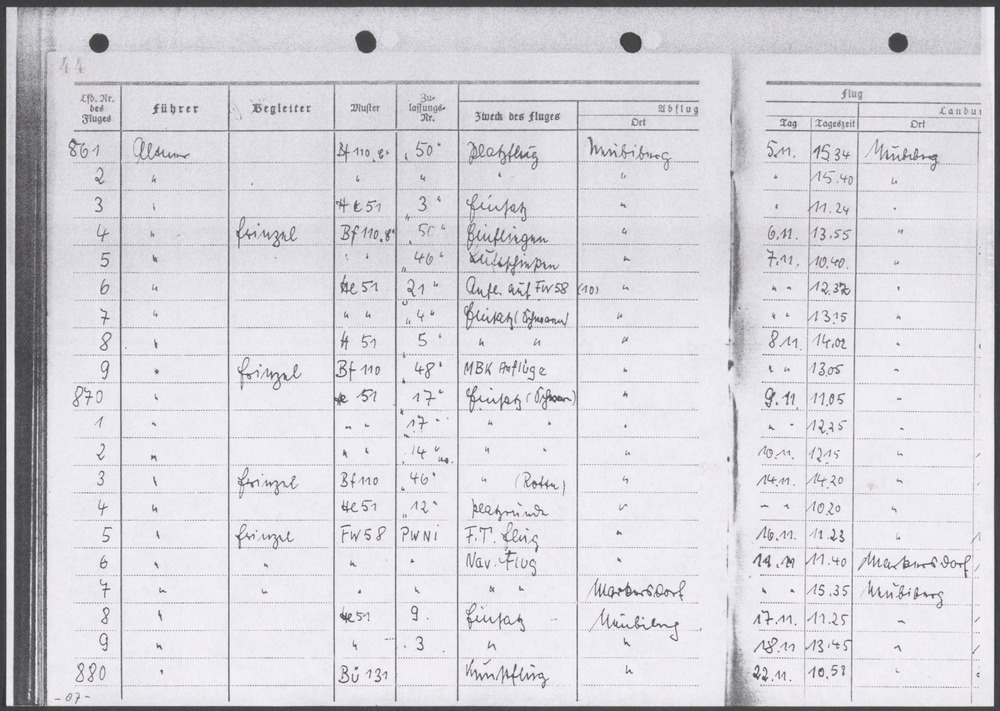 44
Lfd. Nr. des Fluges Führer Begleiter Muster Zulassungs-Nr. Zweck des Fluges Abflug Ort Flug Tag Tageszeit Landu Ort
861 Bf 110 "50" Platzflug Neubiberg 5.11. 15.34 Neubiberg
2 " " " " " " 15.40 "
3 " He 51 "3" Einsatz " " 11.24 "
4 " Frinzel Bf 110 "50" Einfliegen " 6.11. 13.55 "
5 " " " "46" " 7.11. 10.40. "
6 " He 51 "21" auf FW 58 (10) " " " 12.37 "
7 " " " "4" Einsatz (Schwarm) " " " 13.15 "
8 " H 51 "5" " " " 8.11. 14.02 "
9 " Frinzel Bf 110 "48" MBK Anflüge " " " 13.05 "
870 " He 51 "17" Einsatz (Schwarm) " 9.11. 11.05 "
1 " " " "17" " " " " " 12.25 "
2 " " " "14" " " " 10.11. 12.15 "
3 " Frinzel Bf 110 "46" " (Rotte) " 14.11. 14.20 "
4 " He 51 "12" Platzrunde " " " 10.20 "
5 " Frinzel FW 58 PWNI F.T. Flug " 16.11. 11.23 "
6 " " " " Nav. Flug " 11.40 Markersdorf
7 " " " " " " Markersdorf " " 15.35 Neubiberg
8 " He 51 9 Einsatz Neubiberg 17.11. 11.25 "
9 " " 3 " " 18.11 13.45 "
880 " Bü 131 Kunstflug " 22.11. 10.58 "
-07-